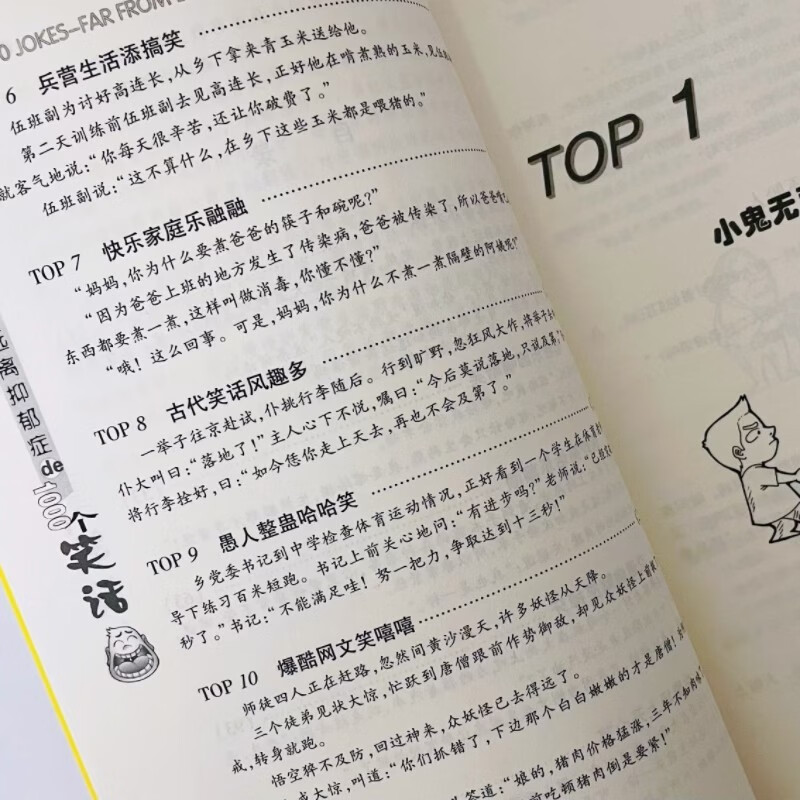 0 JOKES—FAR FROM
6 兵营生活添搞笑
伍班副为讨好高连长，从乡下拿来青玉米送给他。
第二天训练前伍班副去见高连长，正好他在啃煮熟的玉米，见伍
就客气地说：“你每天很辛苦，还让你破费了。”
伍班副说：“这不算什么，在乡下这些玉米都是喂猪的。”
TOP 7 快乐家庭乐融融
“妈妈，你为什么要煮爸爸的筷子和碗呢？”
“因为爸爸上班的地方发生了传染病，爸爸被传染了，所以爸爸
东西都要煮一煮，这样叫做消毒，你懂不懂？”
“哦！这么回事。可是，妈妈，你为什么不煮一煮隔壁的阿姨呢！
TOP 8 古代笑话风趣多
一举子往京赴试，仆挑行李随后。行到旷野，忽狂风大作，将举子
仆大叫曰：“落地了！”主人心下不悦，嘱曰：“今后莫说落地，只说及第。”
将行李拴好，曰：“如今恁你走上天去，再也不会及第了。”
TOP 9 愚人整蛊哈哈笑
乡党委书记到中学检查体育运动情况，正好看到一个学生在体育老
导下练习百米短跑。书记上前关心地问：“有进步吗？”老师说：“已经
秒了。”书记：“不能满足哇！努一把力，争取达到十三秒！”
TOP 10 爆酷网文笑嘻嘻
师徒四人正在赶路，忽然间黄沙漫天，许多妖怪从天降。
三个徒弟见状大惊，忙跃到唐僧跟前作势御敌，却见众妖怪上前
戒，转身就跑。
悟空猝不及防，回过神来，众妖怪已去得远了。
戒大惊，叫道：“你们抓错了，下边那个白白嫩嫩的才是唐僧！
答道：“娘的，猪肉价格猛涨，三年不知肉味
前吃顿猪肉倒是要紧！”
离抑郁症de1000个笑话
TOP 1
小鬼无